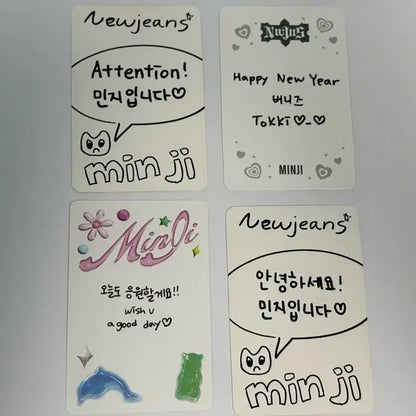 Newjeans
Attention!
민지입니다♡
min ji
NwJns
Happy New Year
버니즈
Tokki ♡_♡
MINJI
MinJi
오늘도 응원할게요!!
wish u
a good day♡
Newjeans
안녕하세요!
민지입니다♡
min ji